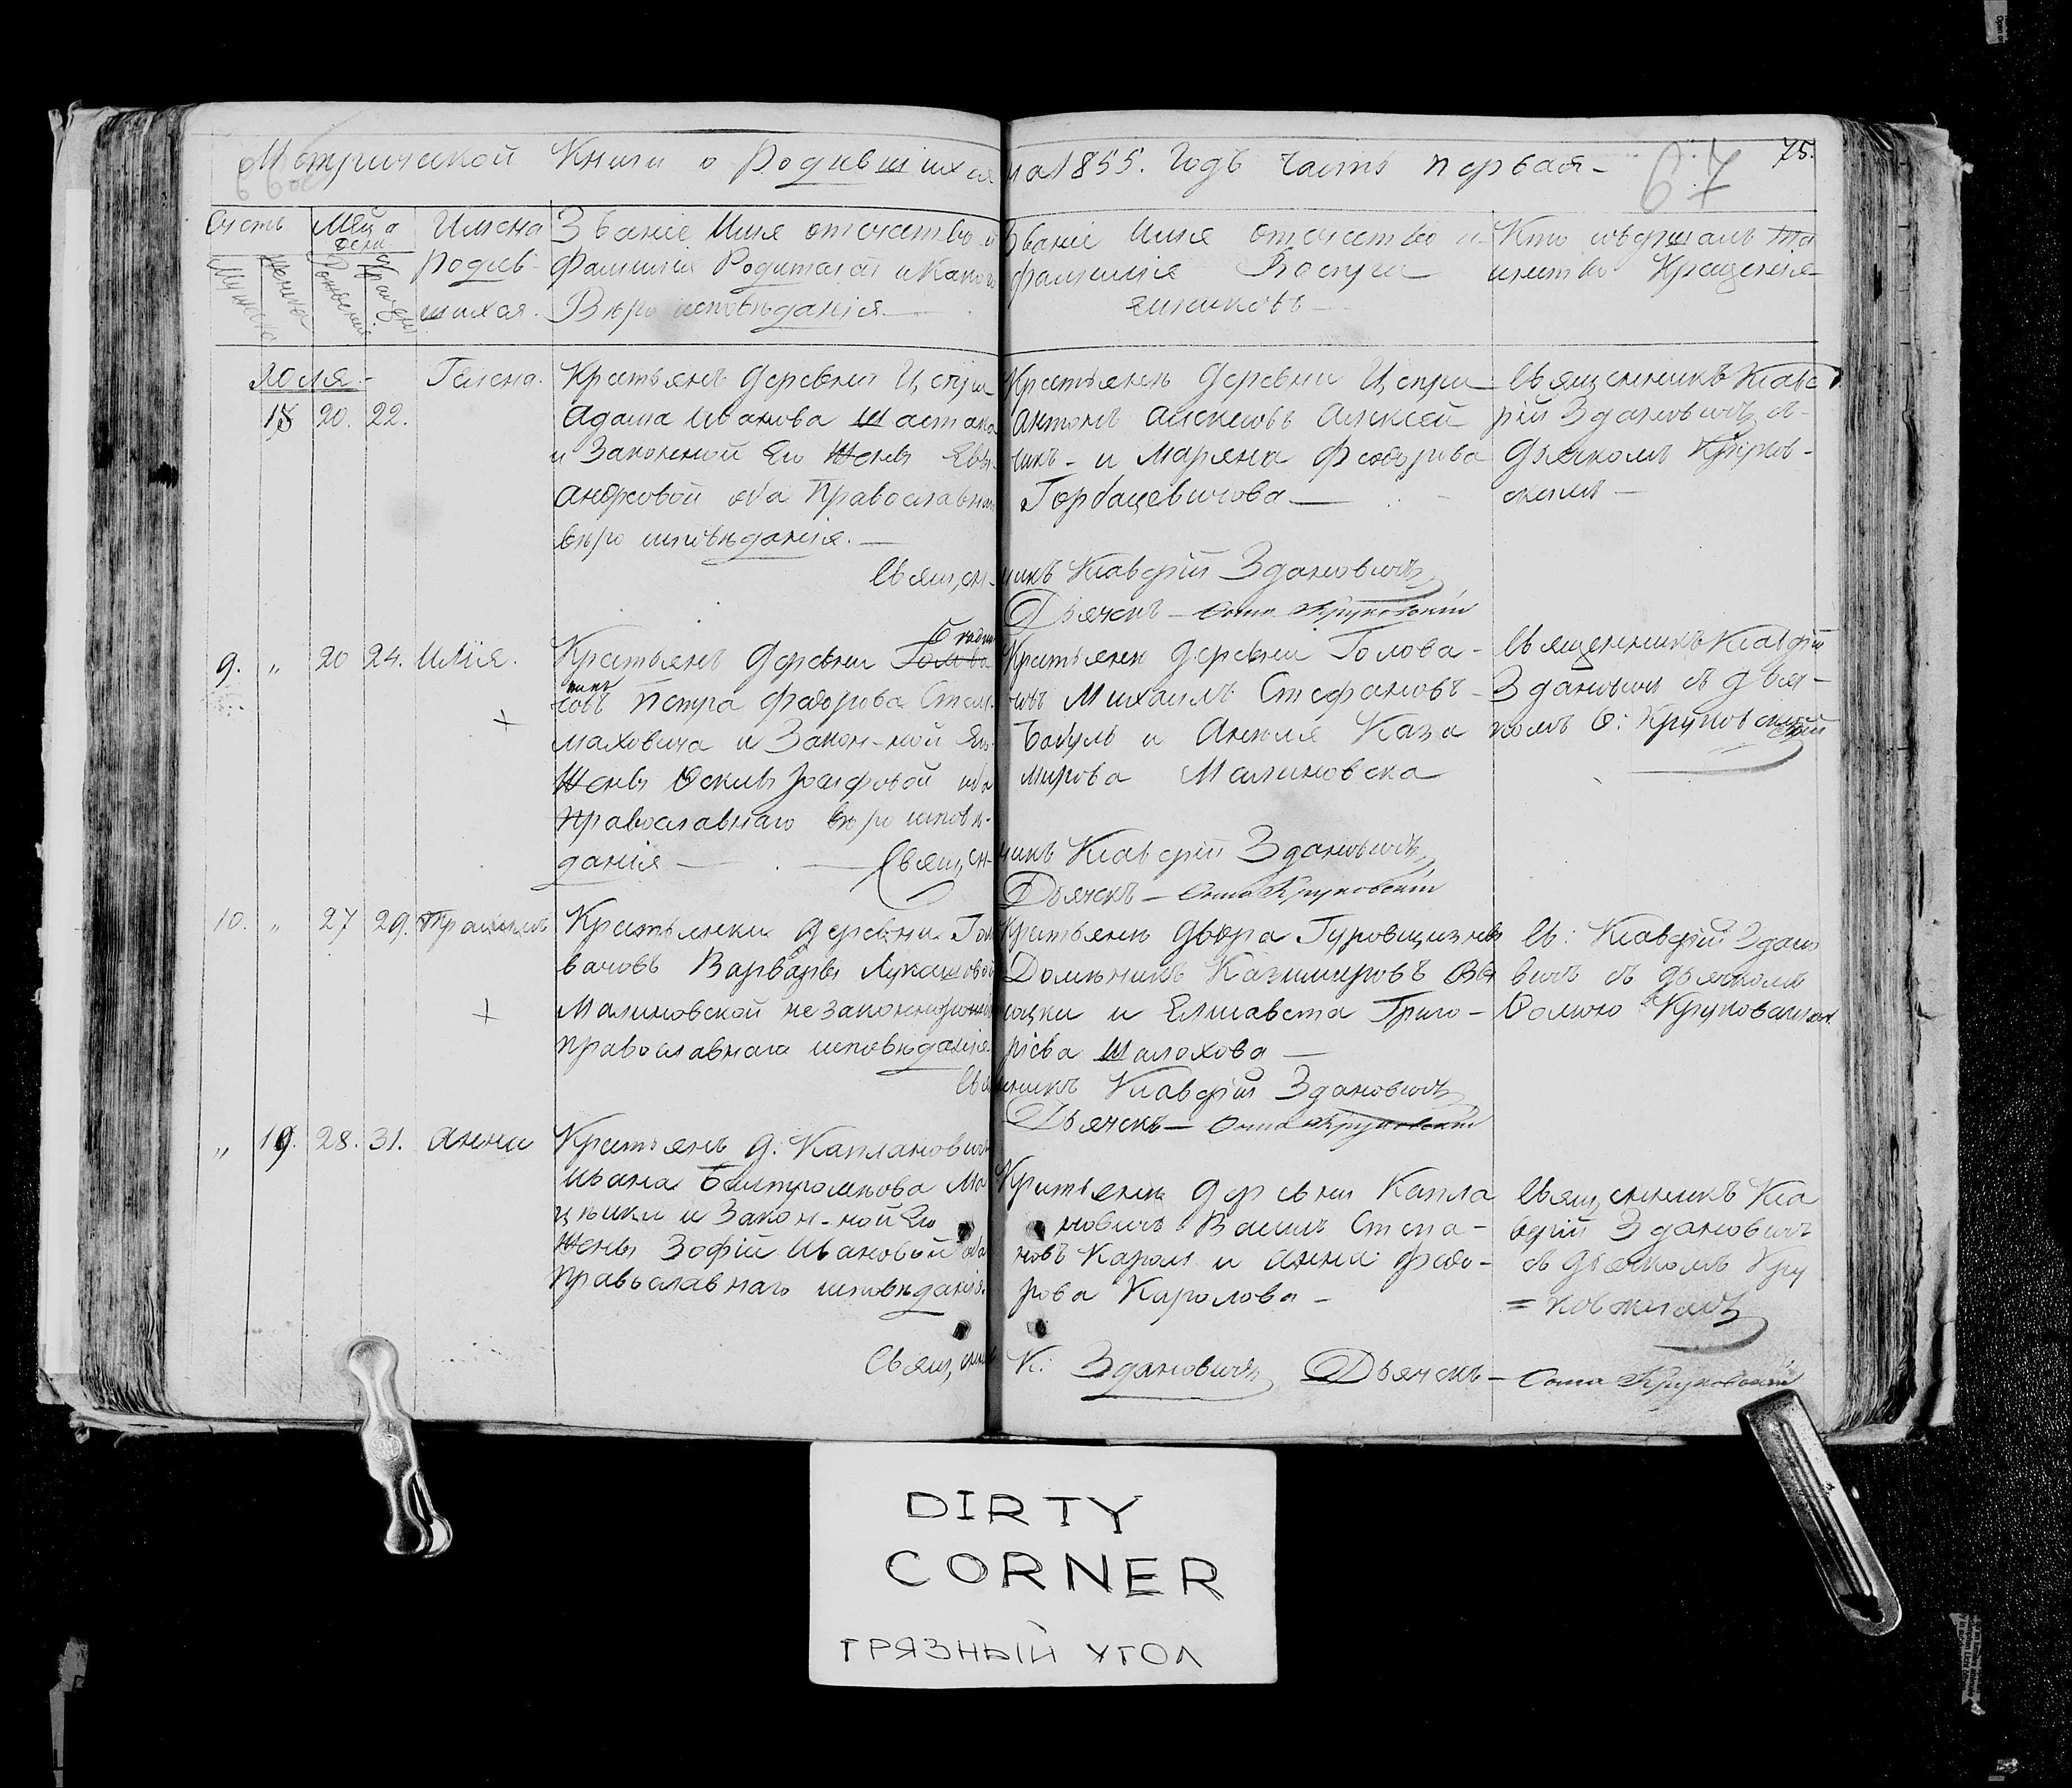 Метрической Книги о Родившихся на 1855. Годъ часть первая -
67
75.
Счетъ
Имена Родив- шихся.
Званіе Имя отечество и
фамилія Родителей и Какого
Вѣро исповѣданія. —
Званіе Имя отечество и
фамилія Воспри
емниковъ —
Кто совершалъ Та
инство Крещенія
Юля -
18 20. 22.
Гелена.
Крестьянъ деревни Цепри
Адама Иванова Шастака
и Законной Его Жены Евы
Андреевой оба Православна
вѣро исповѣданія. —
Крестьяне деревни Цепри
Антонъ Алексеевъ Алексей
чикъ - и Марьяна Федорова
Горбацевичова —
Священникъ Ксаве
рій Здановичъ съ
Дьячкомъ Круков-
скимъ —
Священникъ Ксаверій Здановичъ
Дьячекъ — Фома Круковскій
9. „ 20 24. Илія.
Крестьянъ деревни Голова
човъ Петра Федорова Стель
маховича и Закон-ной Его
Жены Фекли Іосифовой оба
Православнаго вѣро исповѣ-
данія —
Крестьяне деревни Голова-
човъ Михаилъ Стефановъ
Бабуль и Анеля Кази
мирова Малиновска
Священникъ Ксаверій
Здановичъ съ Дьяч-
комъ Ѳ: Круковскимъ
Священникъ Ксаверій Здановичъ
Дьячекъ — Фома Круковскій
10. „ 27 29.
Крестьянки деревни Гол
вачовъ Варвары Лукашовой
Малиновской незаконнорожден
православнаго исповѣданія
Крестьяне двора Гуровщизны
Доминикъ Казимировъ
и Елисавета Григо-
ріева Шалохова —
Св: Ксаверій Здано
вичъ съ дьячкомъ
Фомою Круковскимъ
Священникъ Ксаверій Здановичъ
Дьячекъ — Фома Круковскій
„ 19. 28. 31. Анна
Крестьянъ д: Каплановичъ
Ивана Балтромѣова Ма
цкѣики и Закон-ной Его
Жены Зофіи Ивановой оба
Православнаго исповѣданія.
Крестьяне деревни Капла
новичъ Василь Степа-
новъ Кароль и Анна Федо-
рова Каролова -
Священникъ Кса
верій Здановичъ
съ дьячкомъ Кру
= ковскимъ
Священникъ К: Здановичъ Дьячекъ — Фома Круковскій
DIRTY
CORNER
ГРЯЗНЫЙ УГОЛ